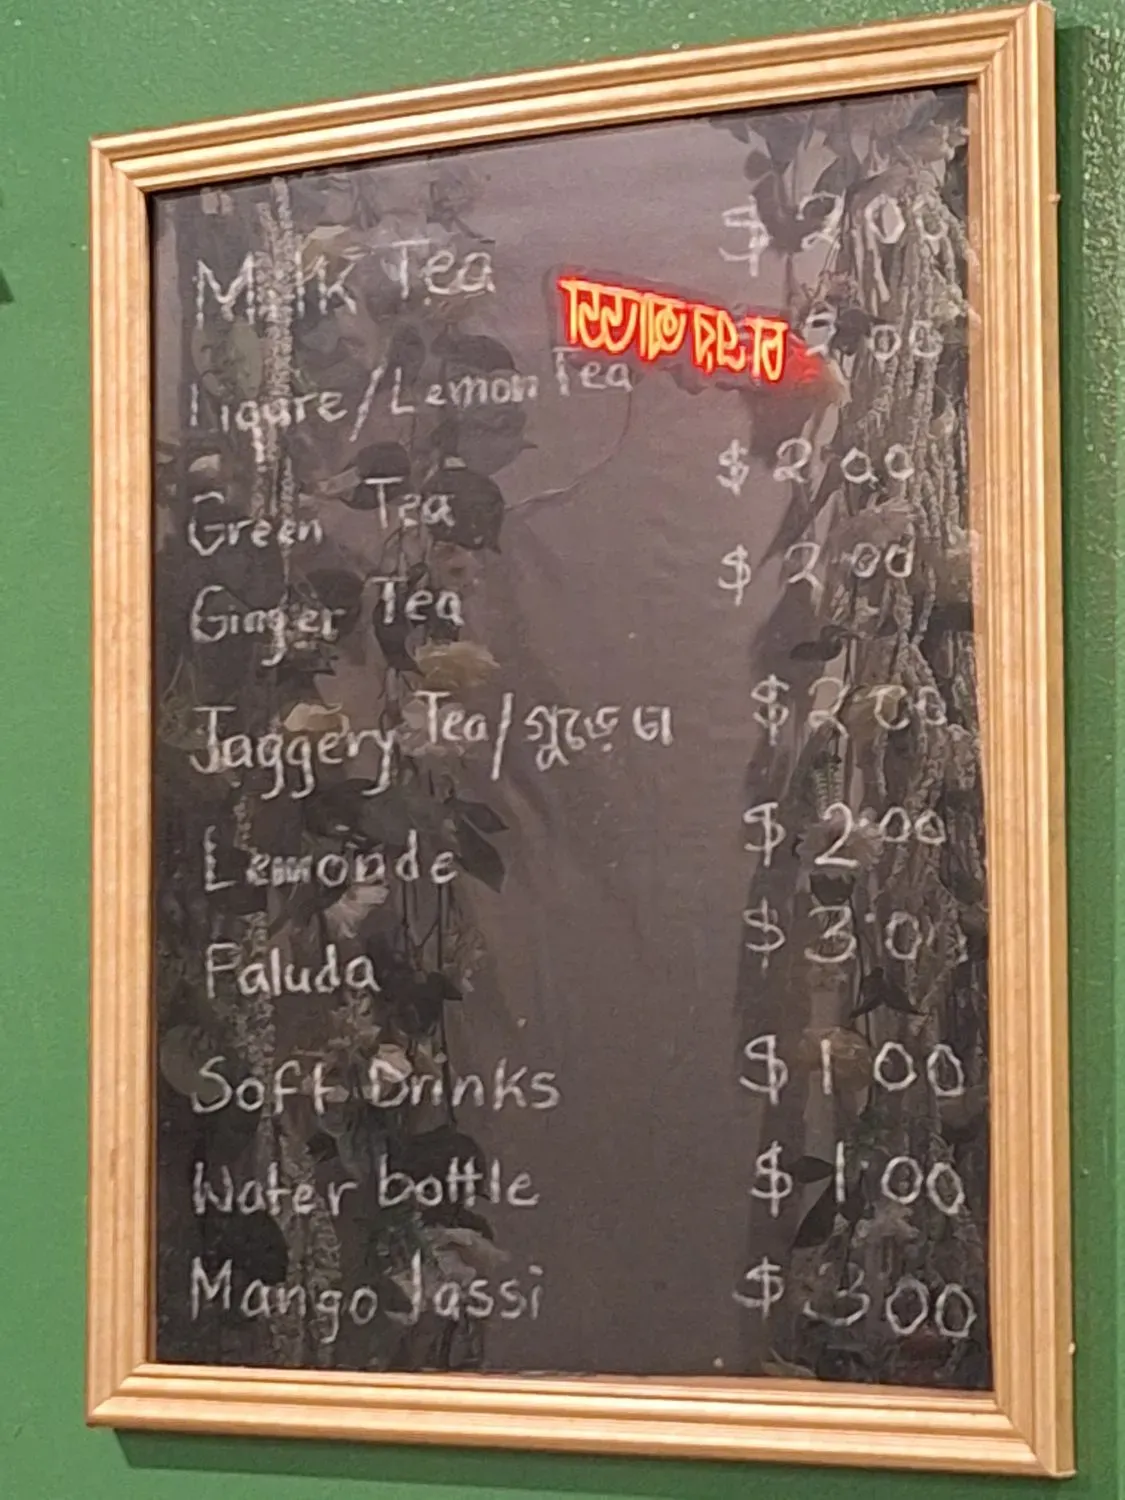 Milk Tea $ 2 00
Liqare/Lemon Tea 00
Green Tea $ 2 00
Ginger Tea $ 2 00
Jaggery Tea/গুড়ে চা $ 2 00
Lemonde $ 2.00
Faluda $ 3.0
Soft Drinks $ 1 00
Water bottle $ 1.00
Mango lassi $ 3 00